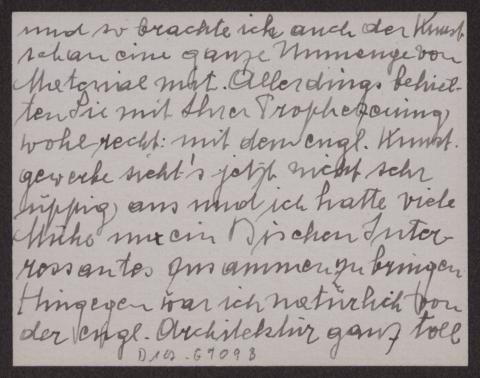 und so brachte ich auch der Kunst
schau eine ganze Unmenge von
Material mit. Allerdings behiel-
ten Sie mit Ihrer Prophezeiung
wohl recht: mit dem engl. Kunst.
gewerbe sieht's jetzt nicht sehr
üppig aus und ich hatte viele
Mühe um ein Bischen Inter-
ressantes zusammenzubringen
Hingegen war ich natürlich von
der engl. Architektur ganz toll